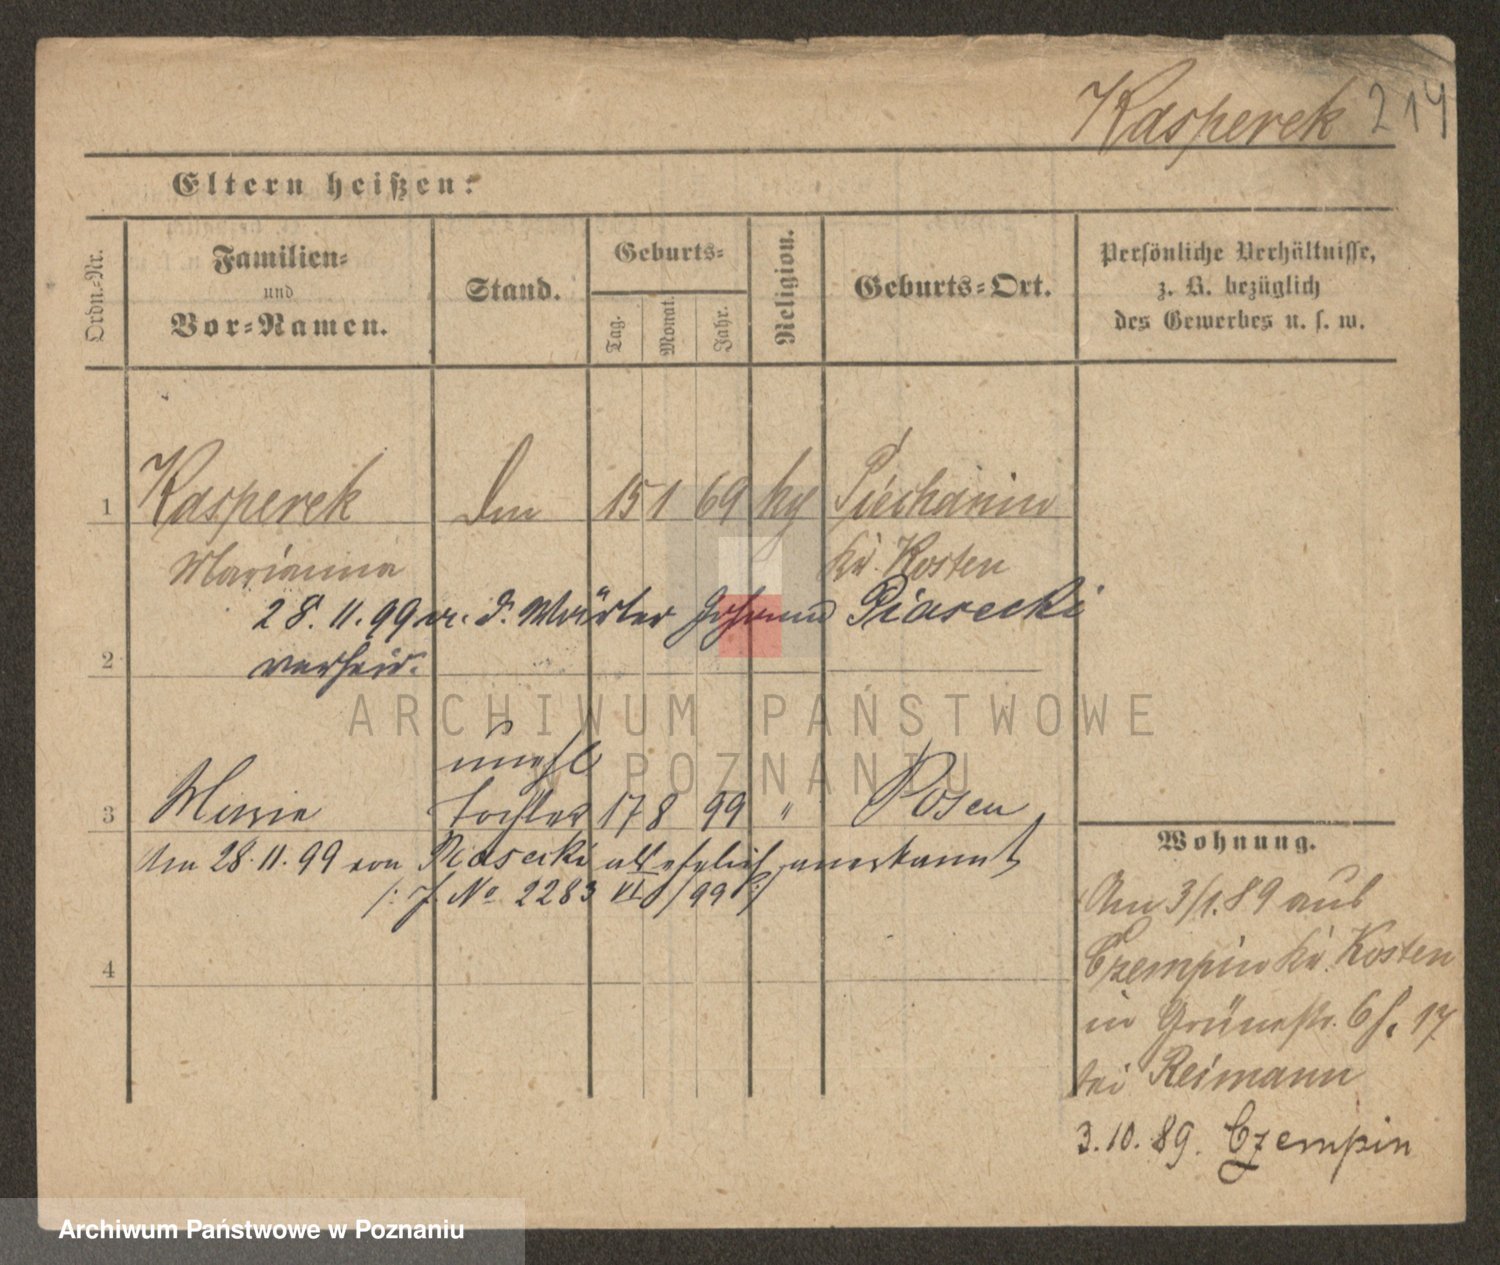 Kasperek 214
Eltern heißen:
Ordn.-Nr.
Familien-
und
Vor-Namen.
Stand.
Geburts-
Tag.
Monat.
Jahr.
Religion.
Geburts-Ort.
Persönliche Verhältnisse,
z. B. bezüglich
des Gewerbes u. s. w.
1 Kasperek 15 1 69 Piechanin
Marianna Kr. Kosten
28. 11. 99 m. d. Wärter Johann Piasecki
2 verheir.
unehl
3 Marie Tochter 17 8 99 " Posen
Am 28. 11. 99 von Piasecki als ehelich anerkannt
/: J. No 2283 VI /99 :/
4
Wohnung.
Am 3/1. 89 aus
Czempin Kr. Kosten
in Grünestr. 6 17
bei Reimann
3. 10. 89. Czempin
ARCHIWUM PAŃSTWOWE
W POZNANIU
Archiwum Państwowe w Poznaniu